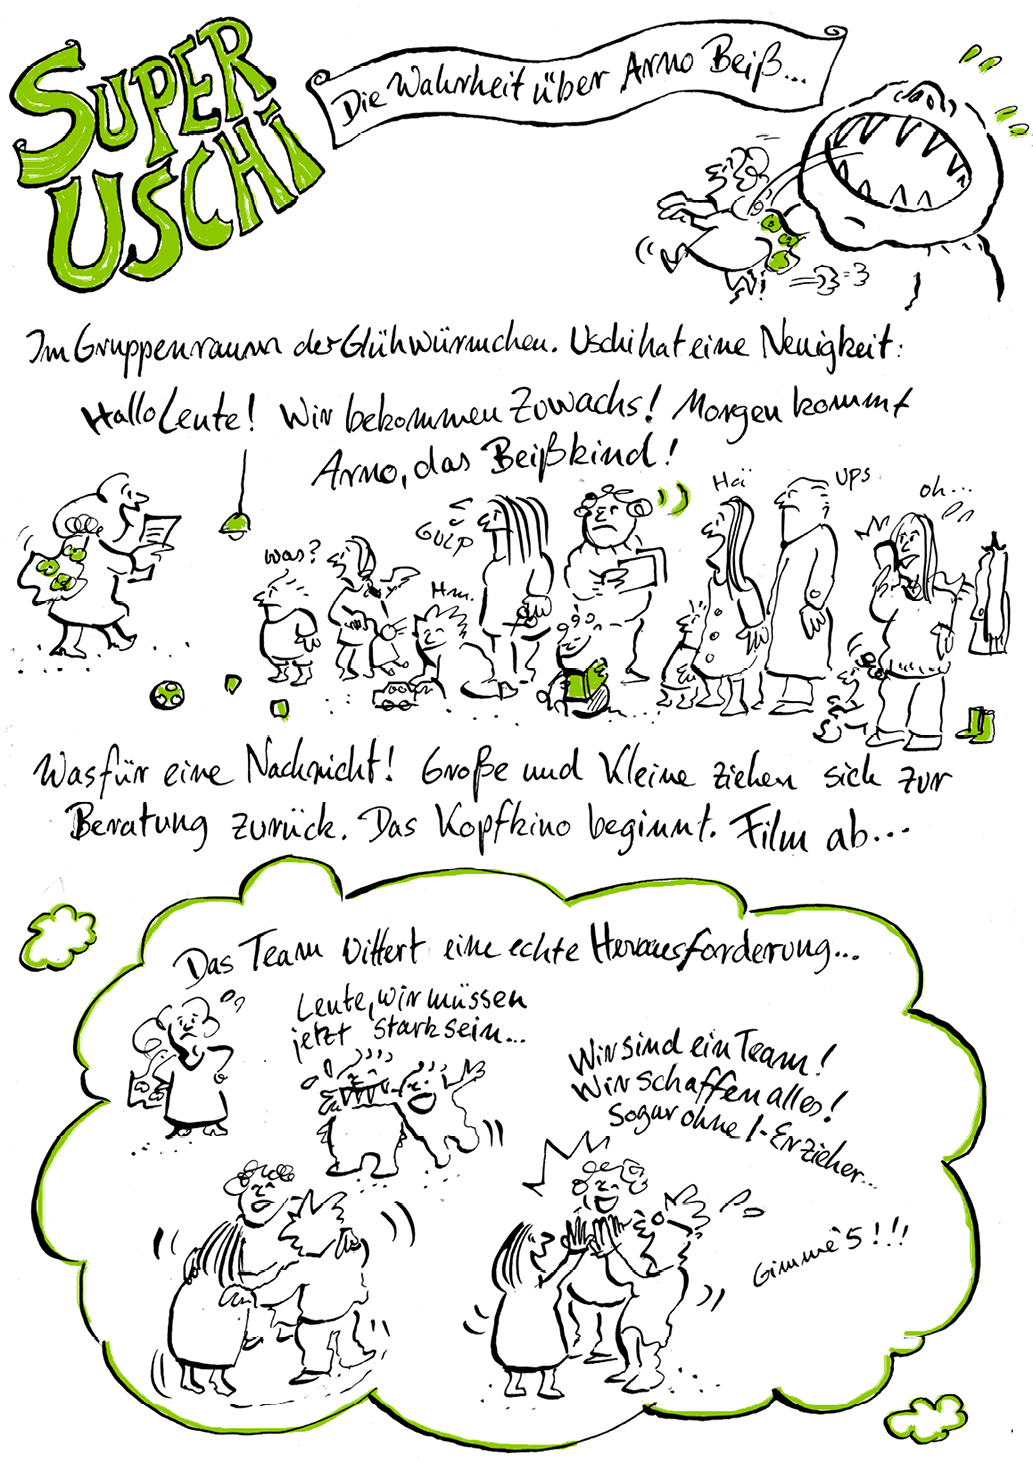 SUPER
USCHI
Die Wahrheit über Arno Beiß...
Im Gruppenraum der Glühwürmchen. Uschi hat eine Neuigkeit:
Hallo Leute! Wir bekommen Zuwachs! Morgen kommt
Arno, das Beißkind!
was?
Hm.
GULP
Hä
UPS
oh...
Was für eine Nachricht! Große und Kleine ziehen sich zur
Beratung zurück. Das Kopfkino beginnt. Film ab...
Das Team wittert eine echte Herausforderung...
Leute, wir müssen
jetzt stark sein...
Wir sind ein Team!
Wir schaffen alles!
Sogar ohne I-Erzieher...
Gimme 5!!!